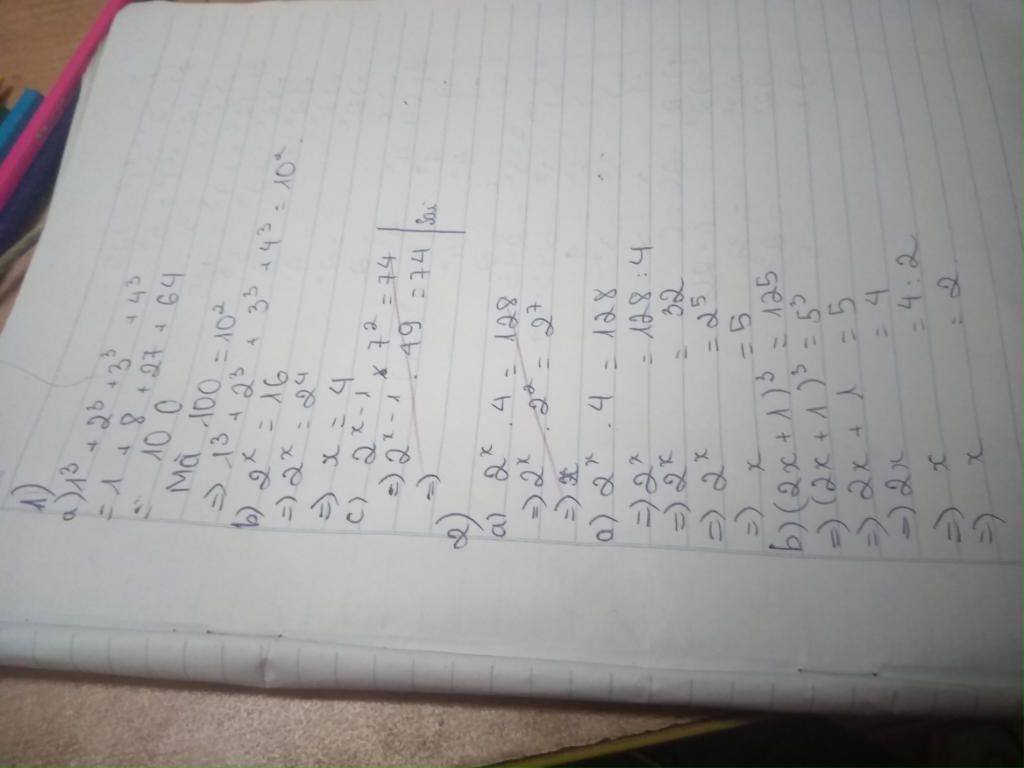 1)
a) 1³ + 2³ + 3³ + 4³
= 1 + 8 + 27 + 64
= 10 0
Mà 100 = 10²
=) 1³ + 2³ + 3³ + 4³ = 10²
b) 2ˣ = 16
=) 2ˣ = 2⁴
=) x = 4
c) 2ˣ⁻¹ 7² = 74
=) 2ˣ - 1 . 49 = 74 Sai
=)
2)
a) 2ˣ . 4 = 128
=) 2ˣ . 2² = 2⁷
=)
a) 2ˣ . 4 = 128
=) 2ˣ = 128 : 4
=) 2ˣ = 32
=) 2ˣ = 2⁵
=) x = 5
b) (2x + 1)³ = 125
=) (2x + 1)³ = 5³
=) 2x + 1 = 5
=) 2x = 4
=) x = 4 : 2
=) x = 2